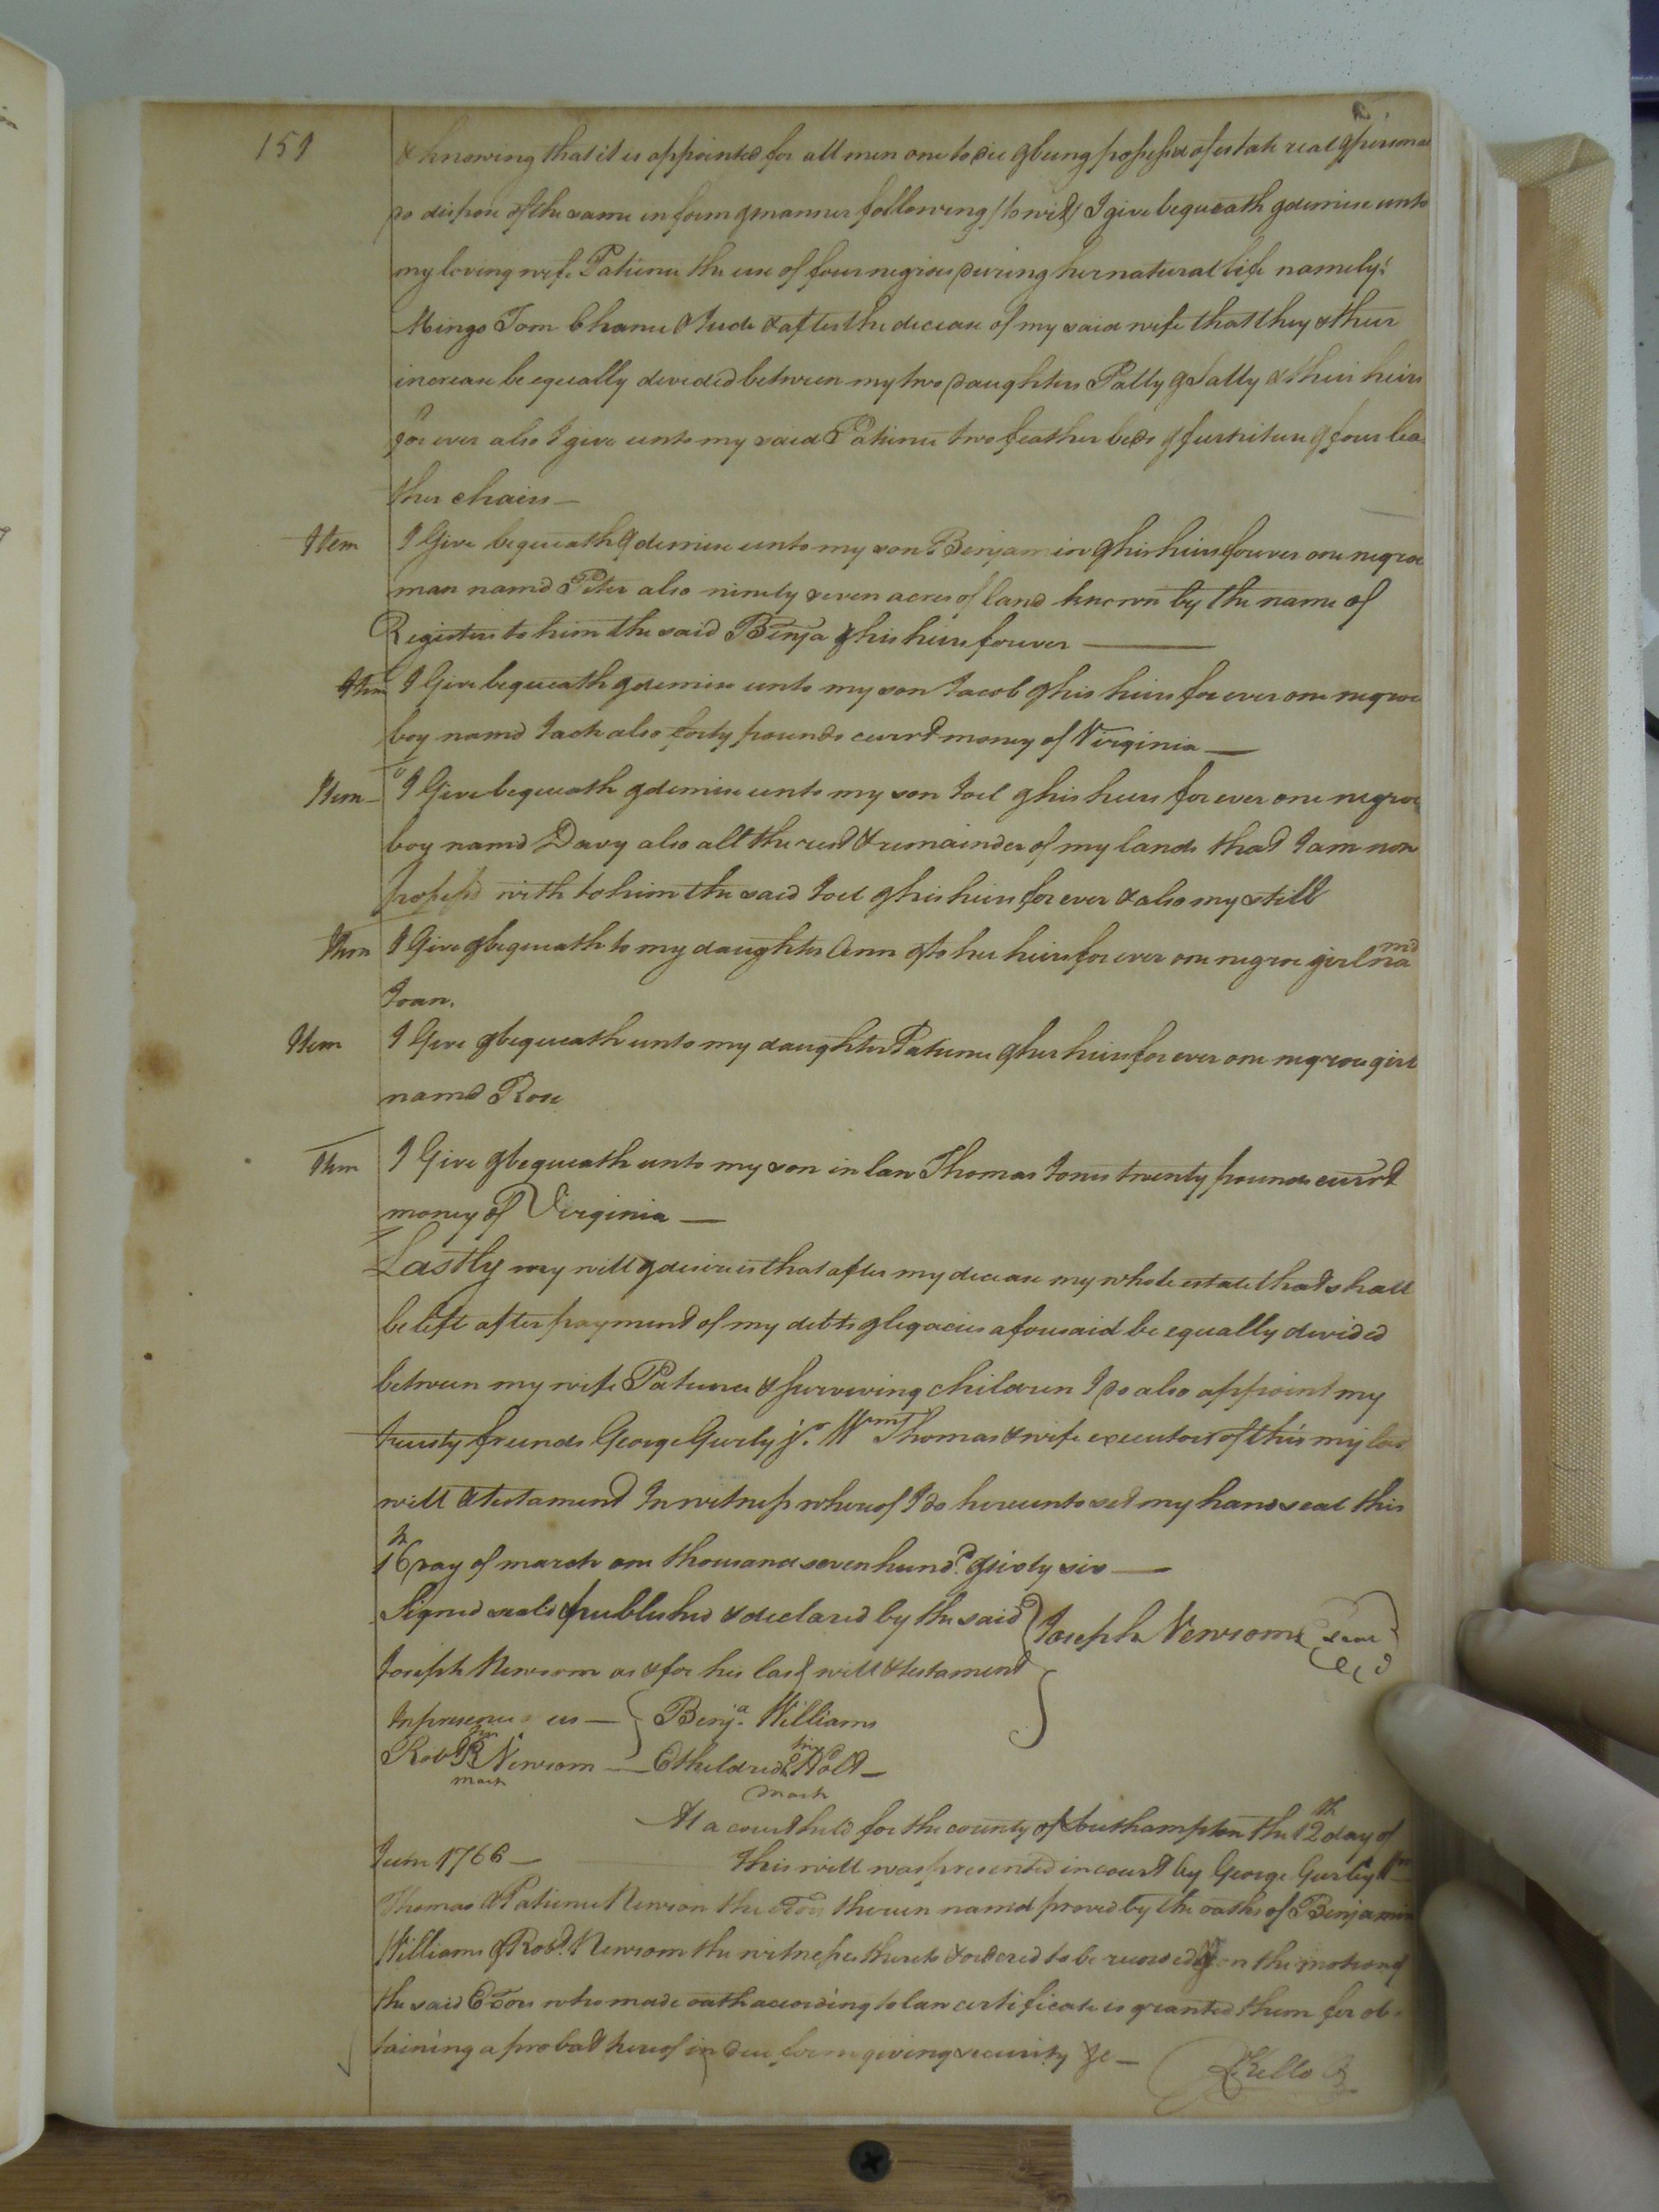 151
& knowing that it is appointed for all men one to die & being possessed of estate real & personal
do dispose of the same in form & manner following (to wit) I give bequeath & demise unto
my loving wife Patience the use of four negroes during her natural life namely:
Mingo Tom Chance & Jude & after the decease of my said wife that they & their
increase be equally devided between my two daughters Patty & Sally & their heirs
for ever also I give unto my said Patience two feather beds & furniture & four lea
ther chairs —
Item I Give bequeath & demise unto my son Benjamin & his heirs forever one negroe
man namd Peter also ninety seven acres of land known by the name of
Registers to him the said Benja & his heirs forever —
Item I Give bequeath & demise unto my son Jacob & his heirs for ever one negroe
boy namd Jack also forty pounds currt money of Virginia —
Item I Give bequeath & demise unto my son Joel & his heirs for ever one negroe
boy namd Davy also all the rest & remainder of my lands that I am now
possessd with to him the said Joel & his heirs for ever & also my still
Item I Give & bequeath to my daughter Ann & to her heirs for ever one negroe girl namd
Joan.
Item I Give & bequeath unto my daughter Patience & her heirs for ever one negroe girl
namd Rose
Item I Give & bequeath unto my son in law Thomas Jones twenty pounds currt
money of Virginia —
Lastly my will & desire is that after my decease my whole estate that shall
be left after payment of my debts & legacies aforesaid be equally devided
between my wife Patience & surviving children I do also appoint my
trusty freinds George Gurly jr. Wm Thomas & wife executors of this my las
will & testament In witness whereof I do hereunto set my hand seal this
16th day of march one thousand seven hundd. & sixty six —
Signed seald & published & declared by the said Joseph Newsom Seal
Joseph Newsom as & for his last will & testament
In presence us — Benja. Williams
Robt R Newsom — Etheldred Holt —
his mark his mark
At a court held for the county of Southampton the 12th day of
June 1766 — This will was presented in court by George Gurley Wm
Thomas & Patience Newsom the Exors therein named proved by the oaths of Benjamin
Williams & Robt. Newsom the witnesses thereto & ordered to be recorded & on the motion of
the said Exors who made oath according to law certificate is granted them for ob
taining a probat hereof in due form giving security &c —
RKello